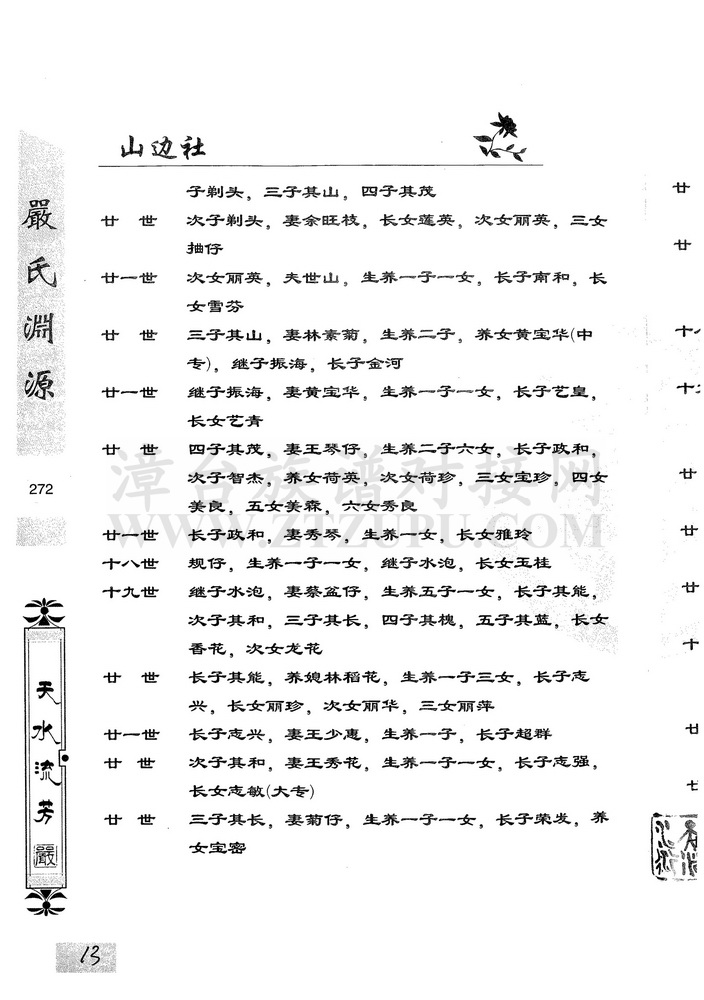 山边社
子剃头，三子其山，四子其茂
廿　世　次子剃头，妻余旺枝，长女莲英，次女丽英，三女
抽仔
廿一世　次女丽英，夫世山，生养一子一女，长子南和，长
女雪芬
廿　世　三子其山，妻林素菊，生养二子，养女黄宝华(中
专)，继子振海，长子金河
廿一世　继子振海，妻黄宝华，生养一子一女，长子艺皇，
长女艺青
廿　世　四子其茂，妻王琴仔，生养二子六女，长子政和，
次子智杰，养女荷英，次女荷珍，三女宝珍，四女
美良，五女美霖，六女秀良
廿一世　长子政和，妻秀琴，生养一女，长女雅玲
十八世　规仔，生养一子一女，继子水泡，长女玉桂
十九世　继子水泡，妻蔡盆仔，生养五子一女，长子其能，
次子其和，三子其长，四子其槐，五子其蓝，长女
香花，次女龙花
廿　世　长子其能，养媳林稻花，生养一子三女，长子志
兴，长女丽珍，次女丽华，三女丽萍
廿一世　长子志兴，妻王少惠，生养一子，长子超群
廿　世　次子其和，妻王秀花，生养一子一女，长子志强，
长女志敏(大专)
廿　世　三子其长，妻菊仔，生养一子一女，长子荣发，养
女宝密
嚴氏淵源
272
天水流芳
嚴
13
漳台族谱对接网
WWW.ZTZUPU.COM
廿
廿
十八
十九
廿
廿
廿
十
廿